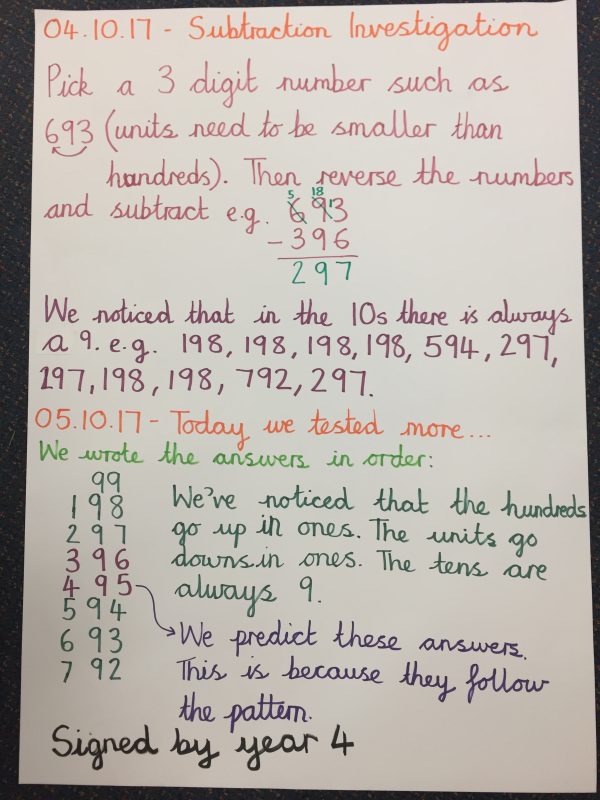 04.10.17 - Subtraction Investigation
Pick a 3 digit number such as
693 (units need to be smaller than
hundreds). Then reverse the numbers
and subtract e.g. 5 18 1
693
- 396
297
We noticed that in the 10s there is always
a 9. e.g. 198, 198, 198, 198, 594, 297,
197, 198, 198, 792, 297.
05.10.17 - Today we tested more...
We wrote the answers in order:
99
198
297
396
495
594
693
792
We've noticed that the hundreds
go up in ones. The units go
downs in ones. The tens are
always 9.
We predict these answers.
This is because they follow
the pattern.
Signed by year 4